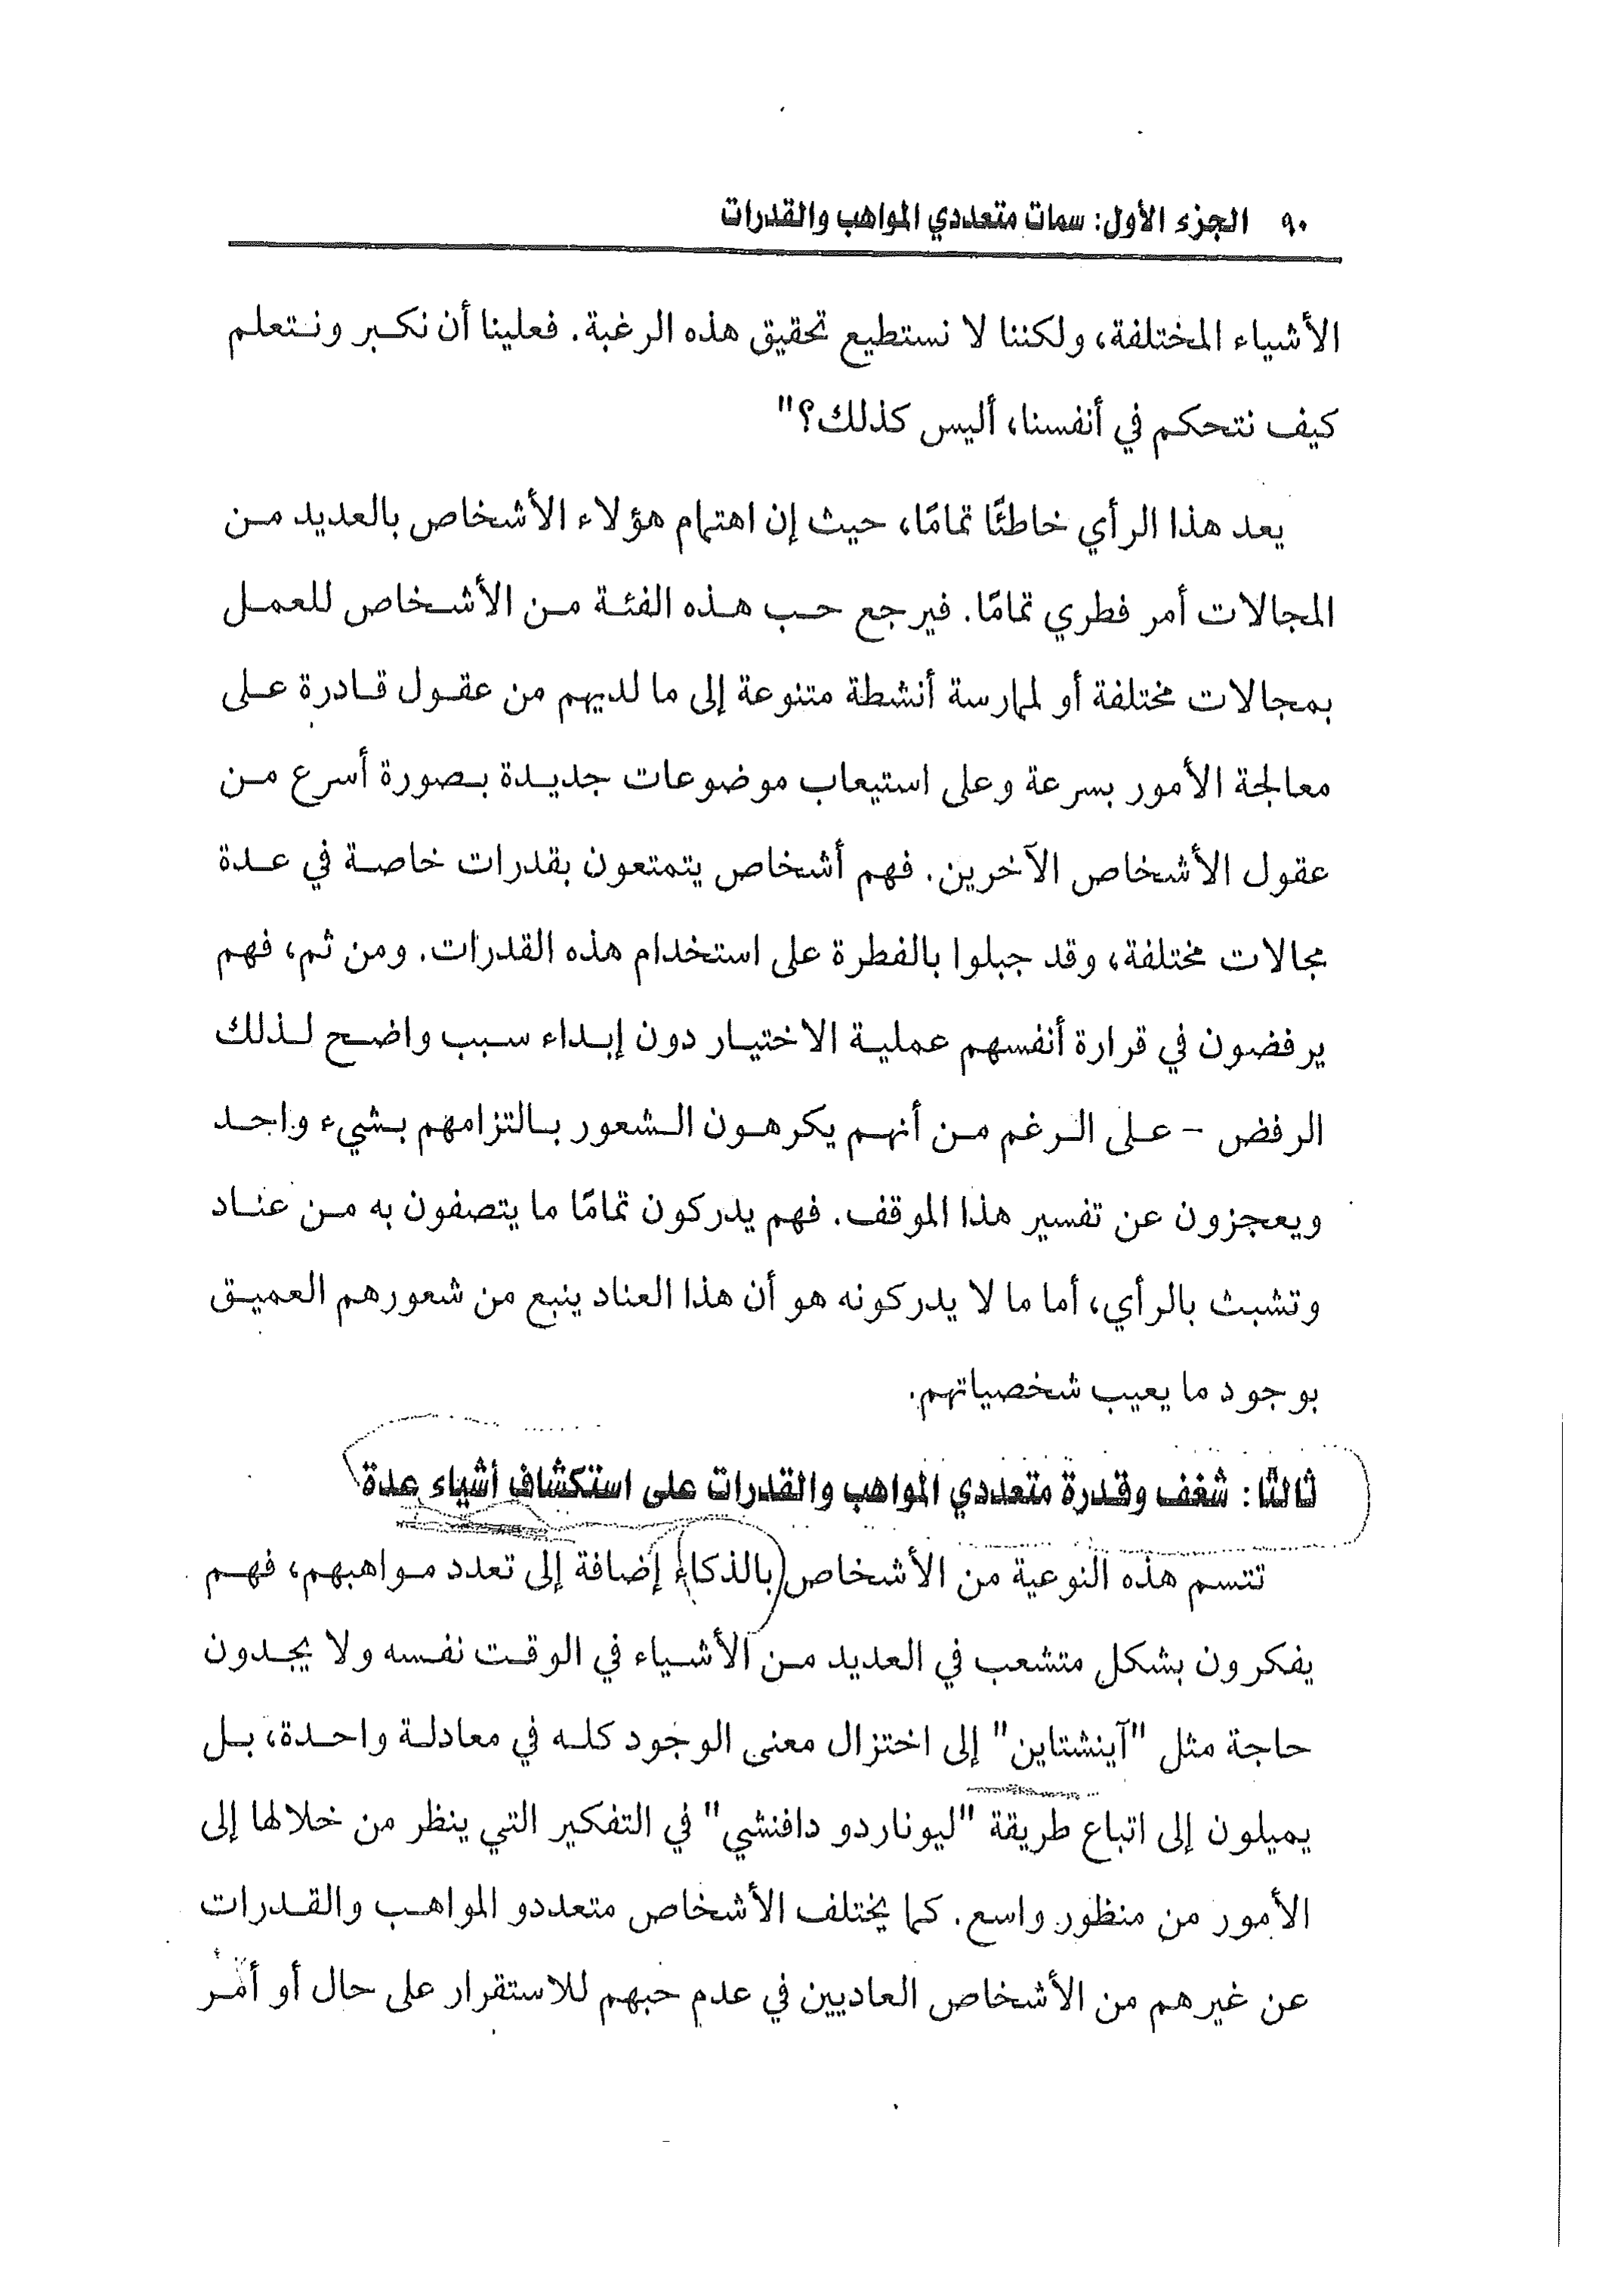 ٩٠ الجزء الأول: سمات متعددي المواهب والقدرات
الأشياء المختلفة، ولكننا لا نستطيع تحقيق هذه الرغبة. فعلينا أن نكبر ونتعلم
كيف نتحكم في أنفسنا، أليس كذلك؟"
يعد هذا الرأي خاطئًا تمامًا، حيث إن اهتمام هؤلاء الأشخاص بالعديد من
المجالات أمر فطري تمامًا. فيرجع حب هذه الفئة من الأشخاص للعمل
بمجالات مختلفة أو لممارسة أنشطة متنوعة إلى ما لديهم من عقول قادرة على
معالجة الأمور بسرعة وعلى استيعاب موضوعات جديدة بصورة أسرع من
عقول الأشخاص الآخرين. فهم أشخاص يتمتعون بقدرات خاصة في عدة
مجالات مختلفة، وقد جبلوا بالفطرة على استخدام هذه القدرات. ومن ثم، فهم
يرفضون في قرارة أنفسهم عملية الاختيار دون إبداء سبب واضح لذلك
الرفض - على الرغم من أنهم يكرهون الشعور بالتزامهم بشيء واحد
ويعجزون عن تفسير هذا الموقف. فهم يدركون تمامًا ما يتصفون به من عناد
وتشبث بالرأي، أما ما لا يدركونه هو أن هذا العناد ينبع من شعورهم العميق
بوجود ما يعيب شخصياتهم.
ثالثًا: شغف وقدرة متعددي المواهب والقدرات على استكشاف أشياء عدة
تتسم هذه النوعية من الأشخاص بالذكاء إضافة إلى تعدد مواهبهم، فهم
يفكرون بشكل متشعب في العديد من الأشياء في الوقت نفسه ولا يجدون
حاجة مثل "آينشتاين" إلى اختزال معنى الوجود كله في معادلة واحدة، بل
يميلون إلى اتباع طريقة "ليوناردو دافنشي" في التفكير التي ينظر من خلالها إلى
الأمور من منظور واسع. كما يختلف الأشخاص متعددو المواهب والقدرات
عن غيرهم من الأشخاص العاديين في عدم حبهم للاستقرار على حال أو أمر